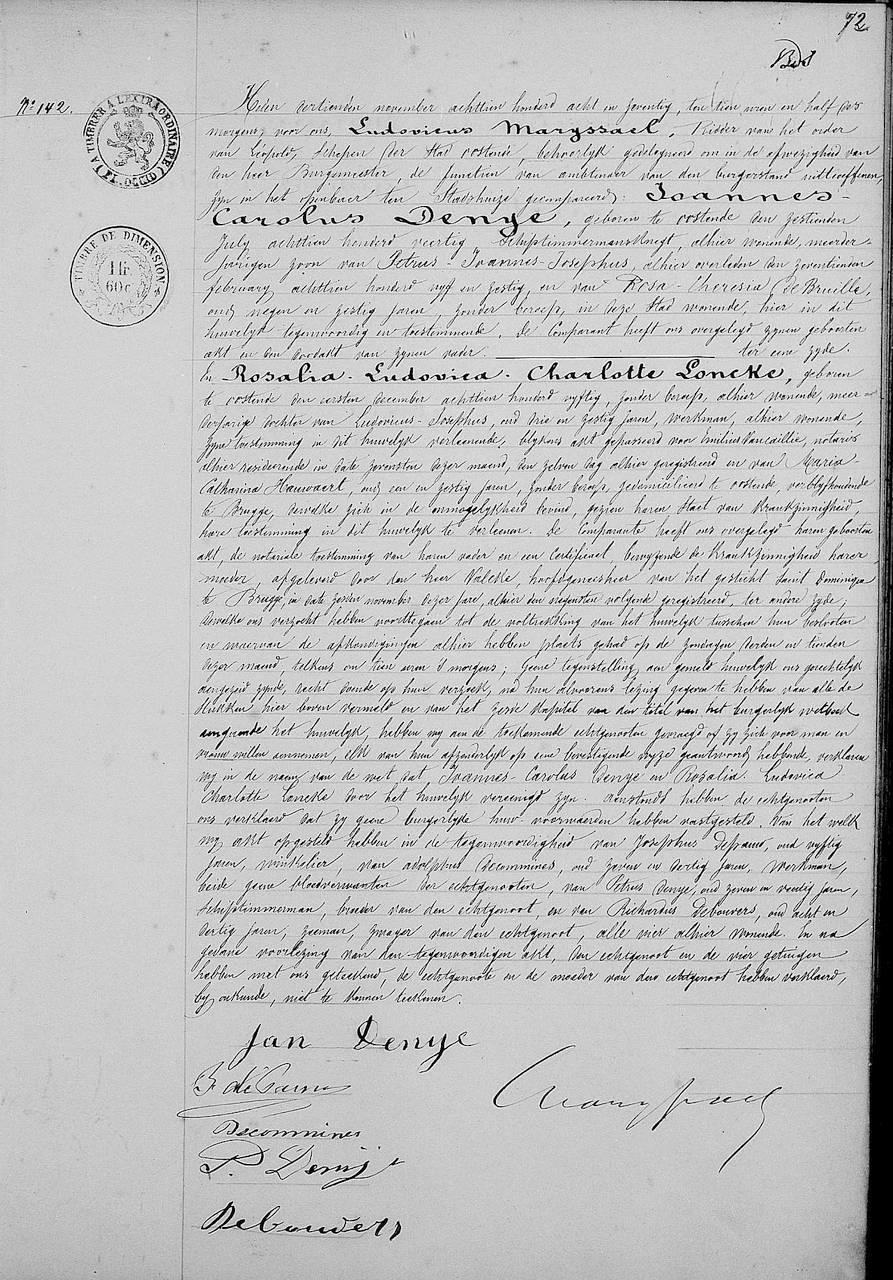 72
Nº 142.
A TIMBRER À L'EXTRAORDINAIRE
(FL. OCCID)
TIMBRE DE DIMENSION
1 fr
60 c
Heden dertienden november achttien honderd acht en zeventig, ten tien uren en half des
morgens, voor ons, Ludovicus Maryssael, Ridder van het order
van Leopold, Schepen der Stad oostende, behoorlyk gedelegueerd om in de afwezigheid van
den heer Burgmeester, de functien van ambtenaer van den burgerstand uittoeoeffenen,
zyn in het openbaer ten Stadshuize gecompareerd: Joannes-
Carolus Denye, geboren te oostende den zestienden
July achttien honderd veertig Schipstimmermansknegt, alhier wonende, meerder-
jarigen zoon van Petrus-Joannes-Josephus, alhier overleden den zeventienden
february achttien honderd vyf en zestig, en van Rosa-Theresia de Bruille,
oud negen en zestig jaren, zonder beroep, in deze Stad wonende, hier in dit
huwelyk tegenwoordig en toestemmende. De Comparant heeft ons overgelegd zynen geboorten
akt en den doodakt van zynen vader. ter eene zyde.
En Rosalia-Ludovica-Charlotte Loncke, geboren
te oostende den eersten december achttien honderd vyftig, zonder beroep, alhier wonende, meer-
derjarige dochter van Ludovicus-Josephus, oud drie en zestig jaren, werkman, alhier wonende,
zyne toestemming in dit huwelyk verleenende, blykens akt gepasseerd voor Emilius Vancaillie, notaris
alhier resideerende in date zevensten dezer maend, den zelven dag alhier geregistreerd en van Maria-
Catharina Hauwaert, oud een en zestig jaren, zonder beroep, gedomicilieerd te oostende, verblyfhoudende
te Brugge, dewelke zich in de onmogelykheid bevind, gezien haren Staet van Krankzinnigheid,
hare toestemming in dit huwelyk te verleenen. De Comparante heeft ons overgelegd haren geboorten
akt, de notariale toestemming van haren vader en een Certificaet, bewyzende de Krankzinnigheid harer
moeder, afgeleverd door den heer Valcke, hoofdgeneesheer van het gesticht Saint Dominique
te Brugge, in date zesden november dezer jare, alhier den negensten volgende geregistreerd, ter andere zyde;
dewelke ons verzocht hebben voorttegaen tot de voltrekking van het huwelyk tusschen hun besloten
en waervan de afkondigingen alhier hebben plaets gehad op de zondagen derden en tienden
dezer maend, telkens om tien uren 's morgens; geene tegenstelling aen gemeld huwelyk ons gerechtelyk
aengezeid zynde, recht doende op hun verzoek, na hun alvorens lezing gegeven te hebben van alle de
stukken hier boven vermeld en van het zesde kapitel van den titel van het burgerlyk wetboek
aengaende het huwelyk, hebben wy aen de toekomende echtgenooten gevraegd of zy zich voor man en
vrouw willen aennemen, elk van hun afzonderlyk op eene bevestigende wyze geantwoord hebbende, verklaren
wy in de naem van de wet dat Joannes-Carolus Denye en Rosalia-Ludovica
Charlotte Loncke door het huwelyk vereenigd zyn. aenstonds hebben de echtgenooten
ons verklaerd dat zy geene burgerlyke huw-voorwaarden hebben vastgesteld. Van het welk
wy akt opgesteld hebben in de tegenwoordigheid van Josephus , oud vyftig
jaren, winkelier, van adolphus Decommines, oud zeven en dertig jaren, werkman,
beide geene bloedverwanten der echtgenooten, van Petrus Denye, oud zeven en veertig jaren,
Schipstimmerman, broeder van den echtgenoot, en van Richardus Debouvers, oud acht en
dertig jaren, zeeman, zwager van den echtgenoot, alle vier alhier wonende. En na
gedane voorlezing van den tegenwoordigen akt, den echtgenoot en de vier getuigen
hebben met ons geteekend, de echtgenoote en de moeder van den echtgenoot hebben verklaerd,
by onkunde, niet te kunnen teekenen.
Jan Denye
Maryssael
Decommines
P. Denije